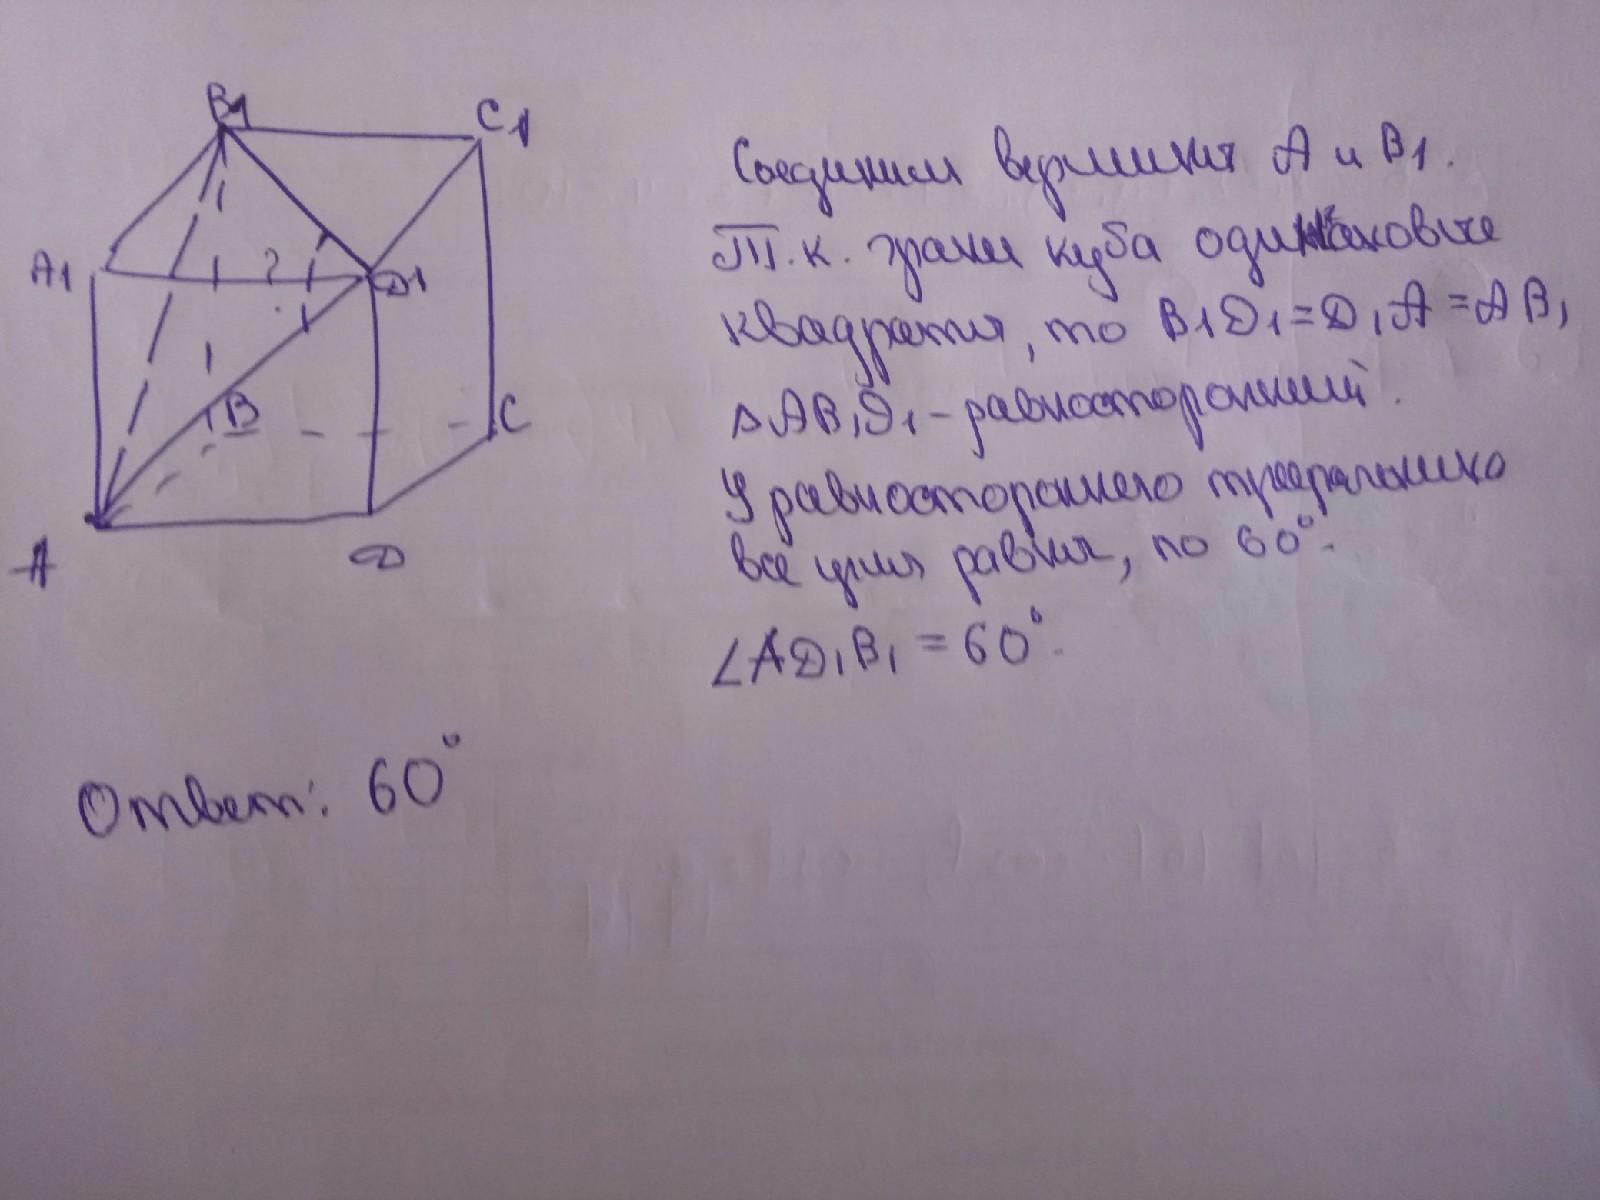 B1
C1
A1
?
D1
B
C
A
D
Соединим вершины A и B1.
Т.к. грани куба одинаковые
квадраты, то B1D1=D1A=AB1
△AB1D1-равносторонний.
У равностороннего треугольника
все углы равны, по 60°.
∠AD1B1=60°.
Ответ: 60°